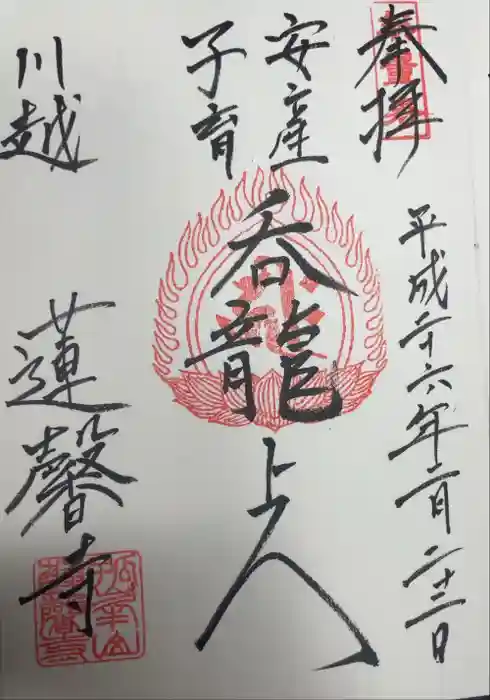 奉拝
平成二十六年二月二十二日
安産
子育
呑龍上人
川越
蓮馨寺